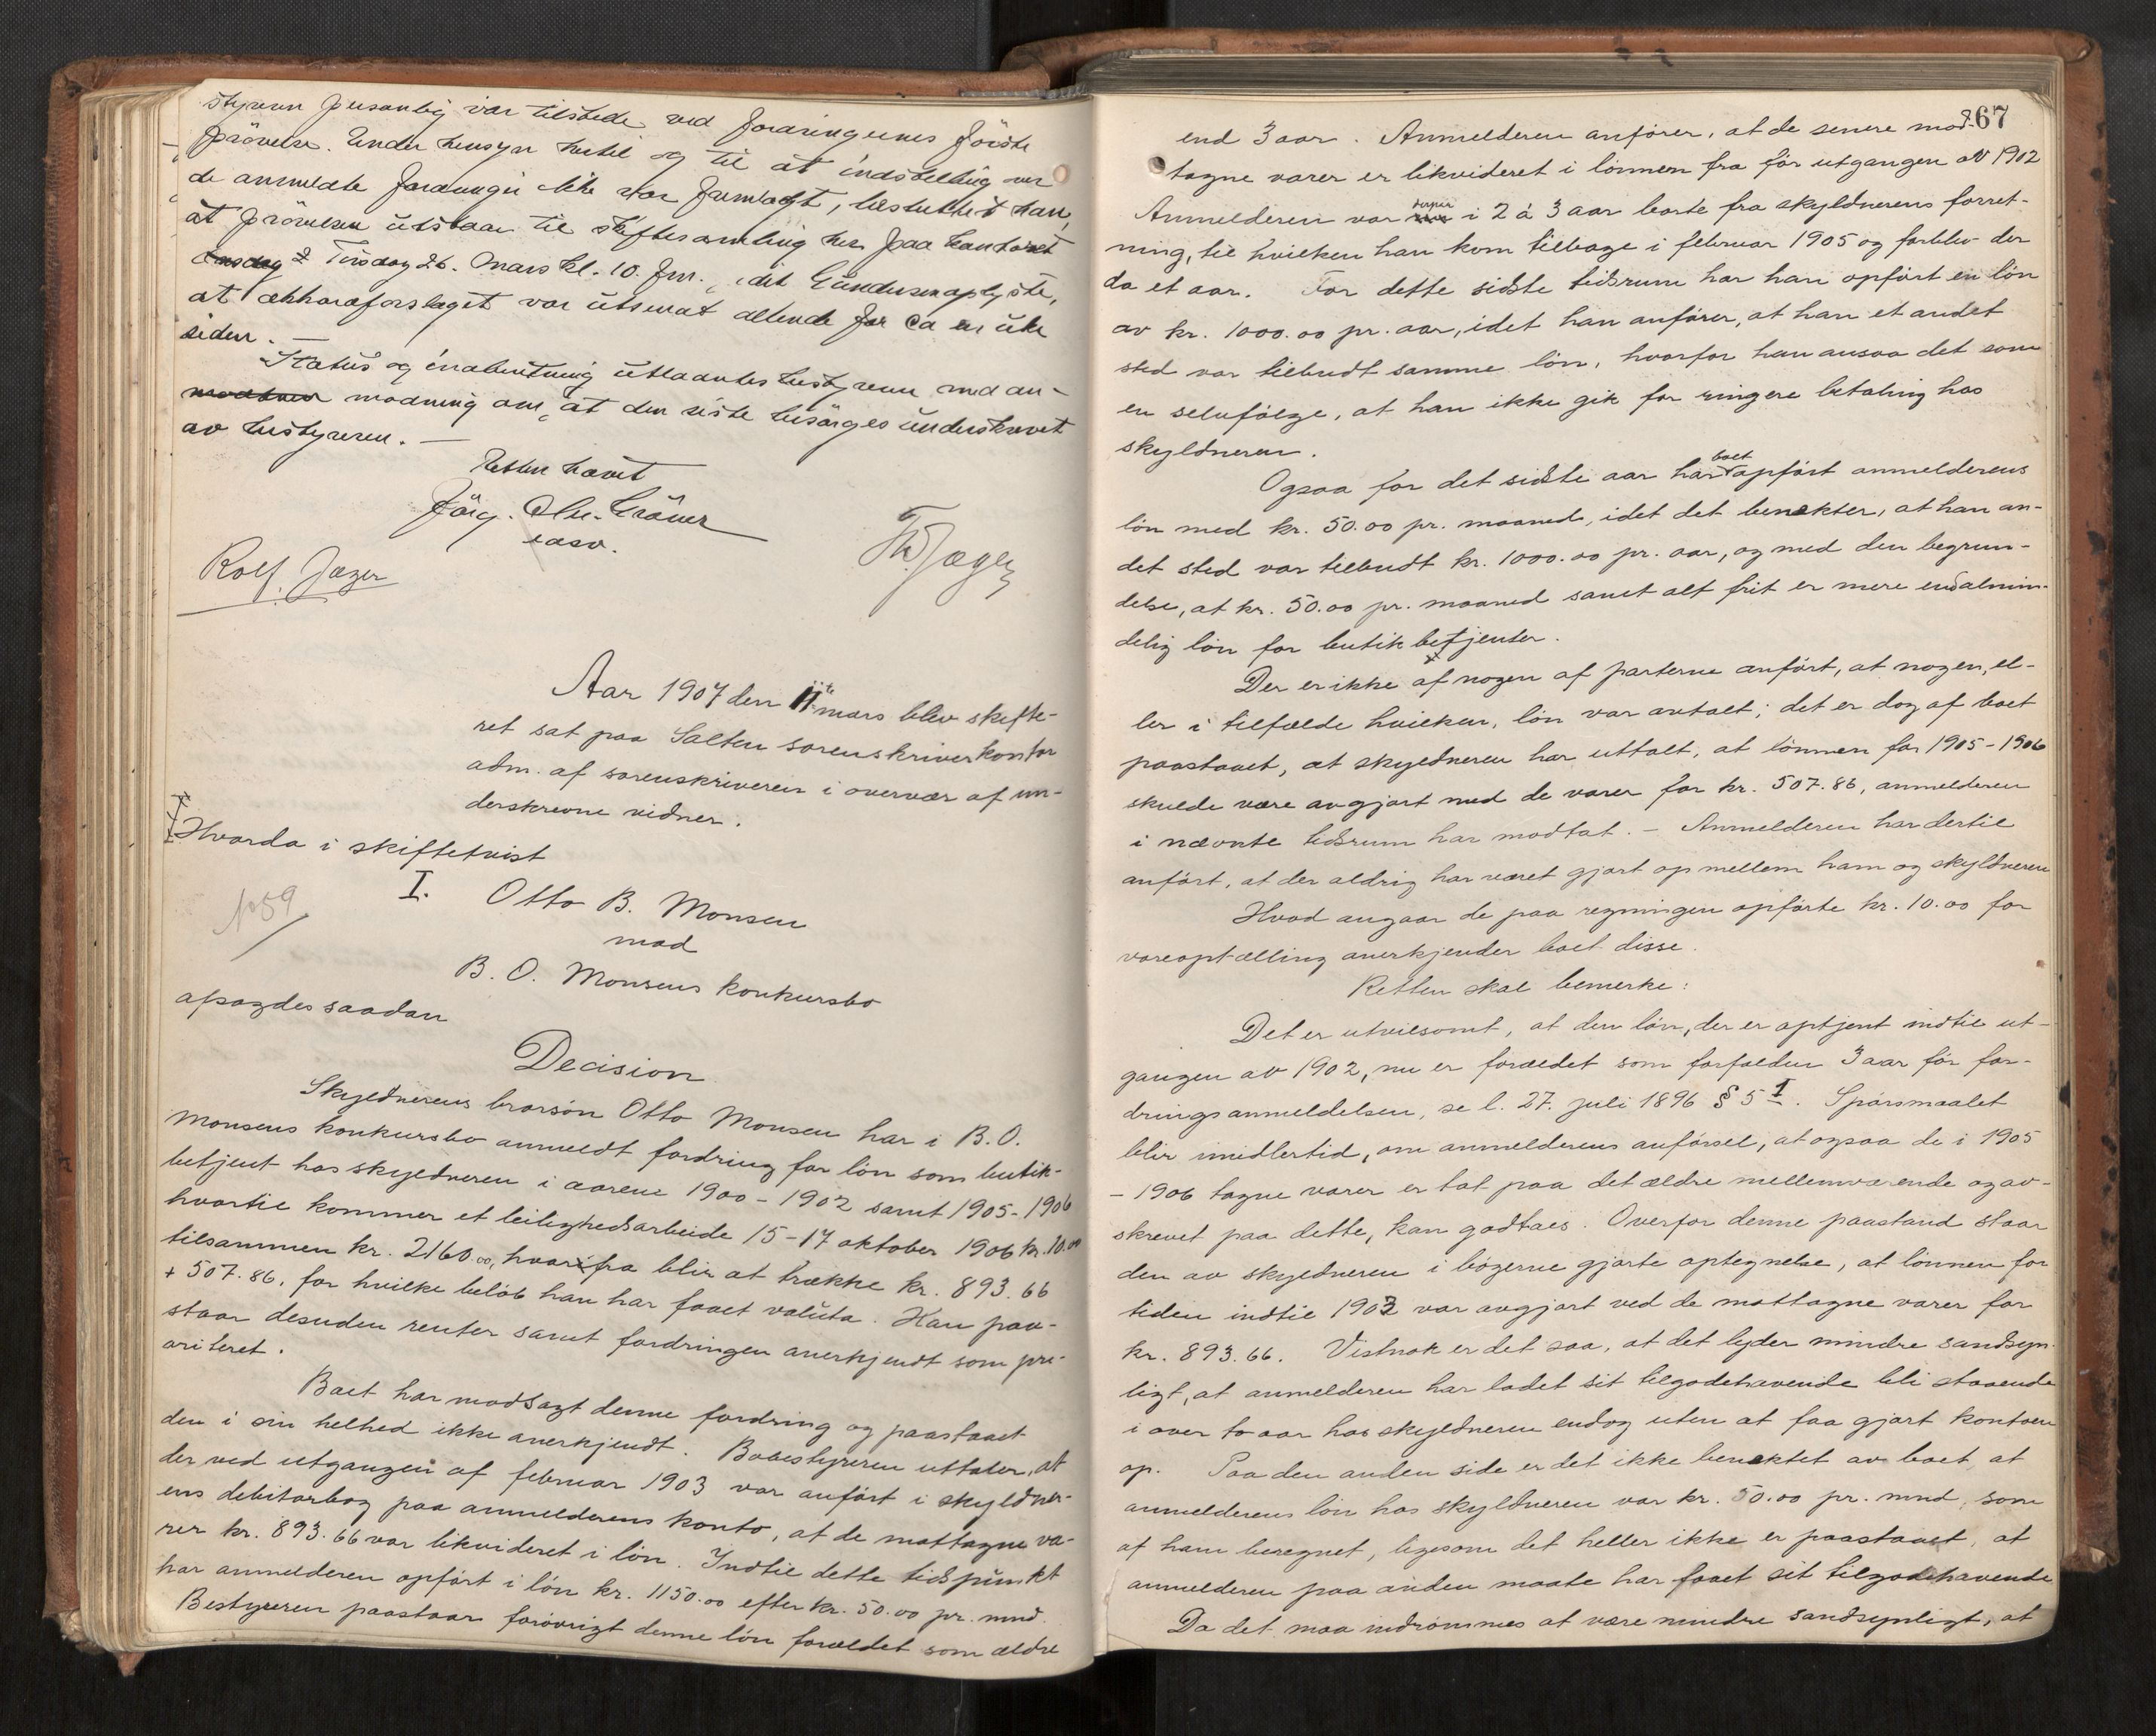 styreren personlig var tilstede ved fordringernes første
prøvelse. Under hensyn hertil og til at indstilling over
de anmeldte fordringer ikke var fremlagt, besluttedes
at prøvelsen utstaar til skiftesamling her paa kontoret
Tirsdag 26. Mars kl. 10. Fm., idet Gundersen oplyste,
at akkordforslaget var utsendt allerede for ca en uke
siden. —
Status og innberetning utlaantes bestyreren med an-
modning om, at den siste besørges underskrevet
av bestyreren. —
Retten hævet
Jörg. Chr. Gräner
Rolf. Jæger
Th. Jæger
Aar 1907 den 11te mars blev skifte-
ret sat paa Salten sorenskriverkontor
adm. af sorenskriveren i overvær af un-
derskrevne vidner.
Hvorda i skiftetvist
No 59
I. Otto B. Monsen
mod
B. O. Monsens konkursbo
afsagdes saadan
Decision
Skyldnerens brorsøn Otto Monsen har i B. O.
Monsens konkursbo anmeldt fordring for løn som butik-
betjent hos skyldneren i aarene 1900 - 1902 samt 1905 - 1906
hvortil kommer et leilighedsarbeide 15 - 17 oktober 1906 kr. 10.00
tilsammen kr. 2160.00, hvorfra blir at trække kr. 893.66
+ 507.86, for hvilke beløb han har faaet valuta. Han paa-
staar desuden renter samt fordringen anerkjendt som pri-
oriteret.
Boet har modsagt denne fordring og paastaaet
den i sin helhed ikke anerkjendt. Bobestyreren uttaler, at
der ved utgangen af februar 1903 var anført i skyldner-
ens debitorbog paa anmelderens konto, at de mottagne va-
rer kr. 893.66 var likvideret i løn. Indtil dette tidspunkt
har anmelderen opført i løn kr. 1150.00 efter kr. 50.00 pr. mnd.
Bestyreren paastaar forøvrigt denne løn forældet som ældre
367
end 3 aar. Anmelderen anfører, at de senere mod-
tagne varer er likvideret i lønnen fra før utgangen av 1902
Anmelderen var i 2 à 3 aar borte fra skyldnerens forret-
ning, til hvilken han kom tilbage i februar 1905 og forblev der
da et aar. For dette sidste tidsrum har han opført en løn
av kr. 1000.00 pr. aar, idet han anfører, at han et andet
sted var tilbudt samme løn, hvorfor han ansaa det som
en selvfølge, at han ikke gik for ringere betaling hos
skyldneren.
Ogsaa for det sidste aar har boet opført anmelderens
løn med kr. 50.00 pr. maaned, idet det benekter, at han an-
det sted var tilbudt kr. 1000.00 pr. aar, og med den begrun-
delse, at kr. 50.00 pr. maaned samt alt frit er mere end almin-
delig løn for butikbetjenter.
Der er ikke af nogen af parterne anført, at nogen, el-
ler i tilfælde hvilken, løn var avtalt; det er dog af boet
paastaaet, at skyldneren har uttalt, at lønnen for 1905 - 1906
skulde være avgjort med de varer for kr. 507.86, anmelderen
i nævnte tidsrum har modtat. - Anmelderen har dertil
anført, at der aldrig har været gjort op mellem ham og skyldneren
Hvad angaar de paa regningen opførte kr. 10.00 for
vareoptælling anerkjender boet disse.
Retten skal bemerke:
Det er utvilsomt, at den løn, der er optjent indtil ut-
gangen av 1902, nu er forældet som forfalden 3 aar før for-
dringsanmeldelsen, se l. 27. juli 1896 § 5 I. Spørsmaalet
blir imidlertid, om anmelderens anførsel, at ogsaa de i 1905
- 1906 tagne varer er tat paa det ældre mellemværende og av-
skrevet paa dette, kan godtaes. Overfor denne paastand staar
den av skyldneren i bøgerne gjorte optegnelse, at lønnen for
tiden indtil 1903 var avgjort ved de mottagne varer for
kr. 893.66. Vistnok er det saa, at det lyder mindre sandsyn-
ligt, at anmelderen har ladet sit tilgodehavende bli staaende
i over to aar hos skyldneren endog uten at faa gjort kontoen
op. Paa den anden side er det ikke benektet av boet, at
anmelderens løn hos skyldneren var kr. 50.00 pr. mnd, som
af ham beregnet, ligesom det heller ikke er paastaaet, at
anmelderen paa anden maate har faaet sit tilgodehavende
Da det maa indrømmes at være mindre sandsynligt, at